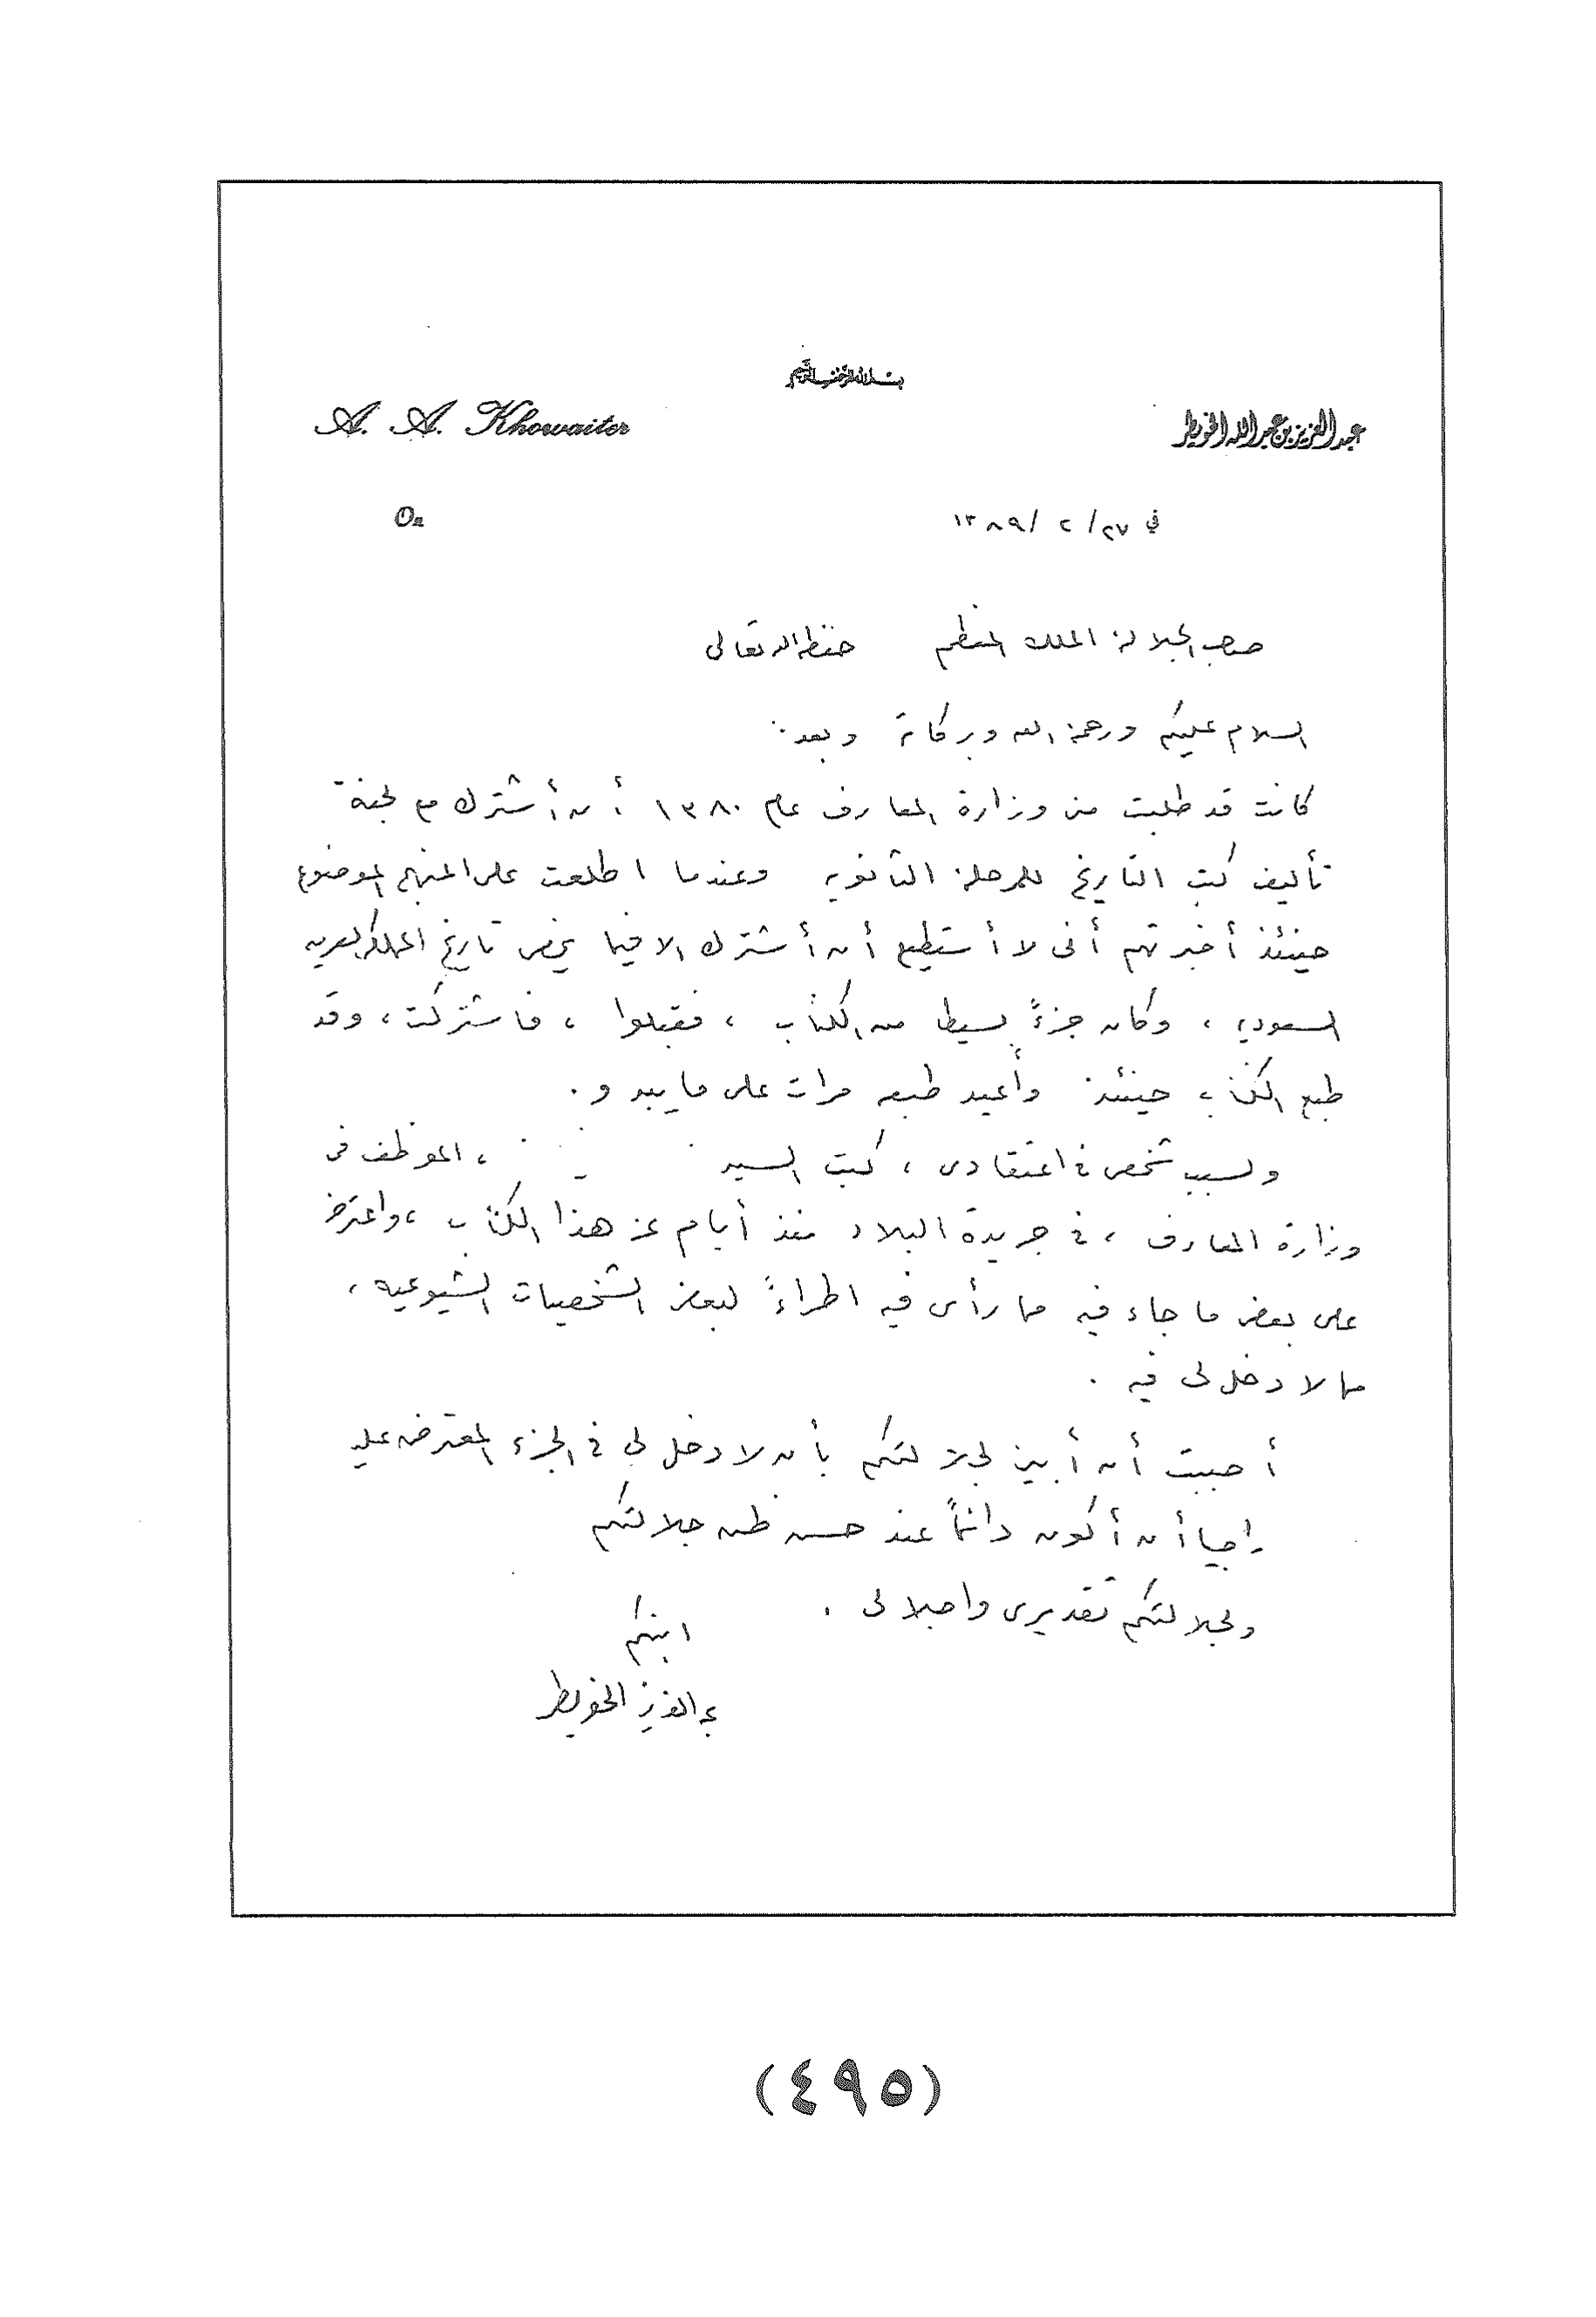 بسم الله الرحمن الرحيم
عبد العزيز بن عبد الله الخويطر
A. A. Khowaiter
في ٢٧/ ٢ /١٣٨٩
On
صاحب الجلالة الملك المعظم حفظه الله تعالى
السلام عليكم ورحمة الله وبركاته وبعد:
كانت قد طلبت مني وزارة المعارف عام ١٣٨٠ أن أشترك مع لجنة
تأليف كتب التاريخ للمرحلة الثانوية وعندما اطلعت على المنهج الموضوع
حينئذ أخبرتهم أنى لا أستطيع أن أشترك الا فيما يخص تاريخ المملكة العربيه
السعودية ، وكان جزءً بسيطا من الكتاب ، فقبلوا ، فاشتركت ، وقد
طبع الكتاب حينئذ وأعيد طبعه مرات على ما يبدو .
ولسبب شخصي في اعتقادى ، كتب السيد ، الموظف في
وزارة المعارف ، في جريدة البلاد منذ أيام عن هذا الكتاب ، واعترض
على بعض ما جاء فيه مما رأى فيه اطراءً لبعض الشخصيات الشيوعيه ،
مما لا دخل لى فيه .
أحببت أن أبين لجلالتكم بأن لا دخل لي في الجزء المعترض عليه
راجيا أن أكون دائماً عند حسن ظن جلالتكم
ولجلالتكم تقديرى واجلالى .
ابنكم
عبد العزيز الخويطر
(٤٩٥)